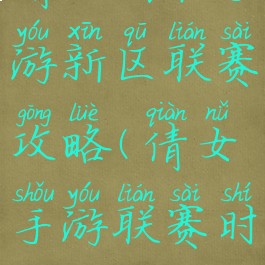 yóu xīn qū lián sài
游新区联赛
gōng lüè qiàn nǚ
攻略(倩女
shǒu yóu lián sài shí
手游联赛时